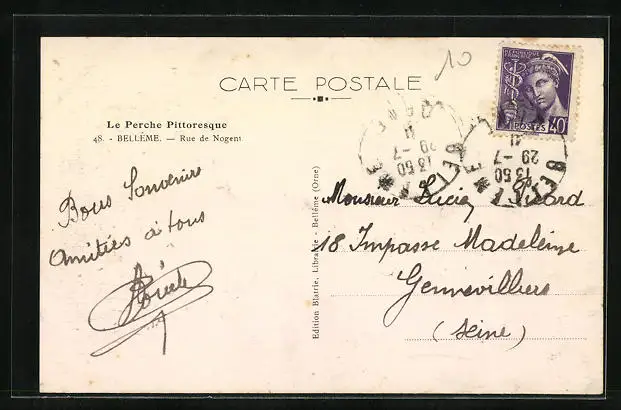 10
CARTE POSTALE
RÉPUBLIQUE FRANÇAISE
POSTES 40c
Le Perche Pittoresque
48. - BELLÊME. — Rue de Nogent
13 50
29 -7
13 50
29 -7
BELLÊME
ORNE
Bons Souvenirs
Amitiés à tous
Edition Blatrie, Librairie - Bellême (Orne)
Monsieur Lucien
18 Impasse Madeleine
Gennevilliers
(Seine)